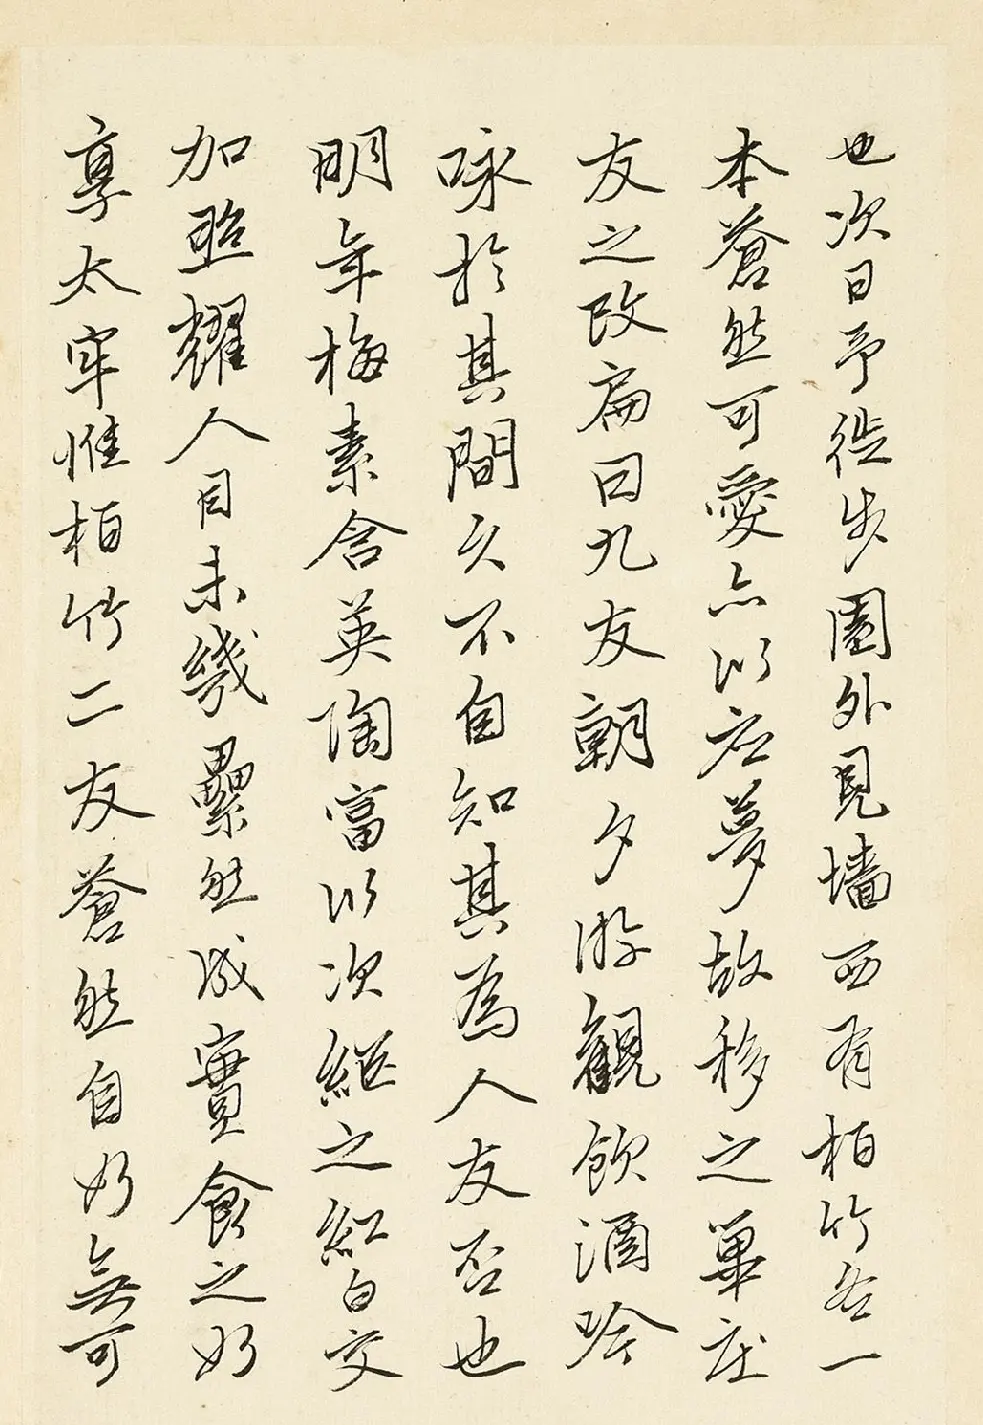 也次日予徙步園外見墻西有栢竹各一
本蒼然可愛亦以应夢故移之畢庄
友之改扁曰九友朝夕游觀飲酒吟
咏於其間久不自知其為人友否也
明年梅素含英陶富以次継之紅白交
加照耀人目未幾纍然成實食之如
享太牢惟栢竹二友蒼然自如無可